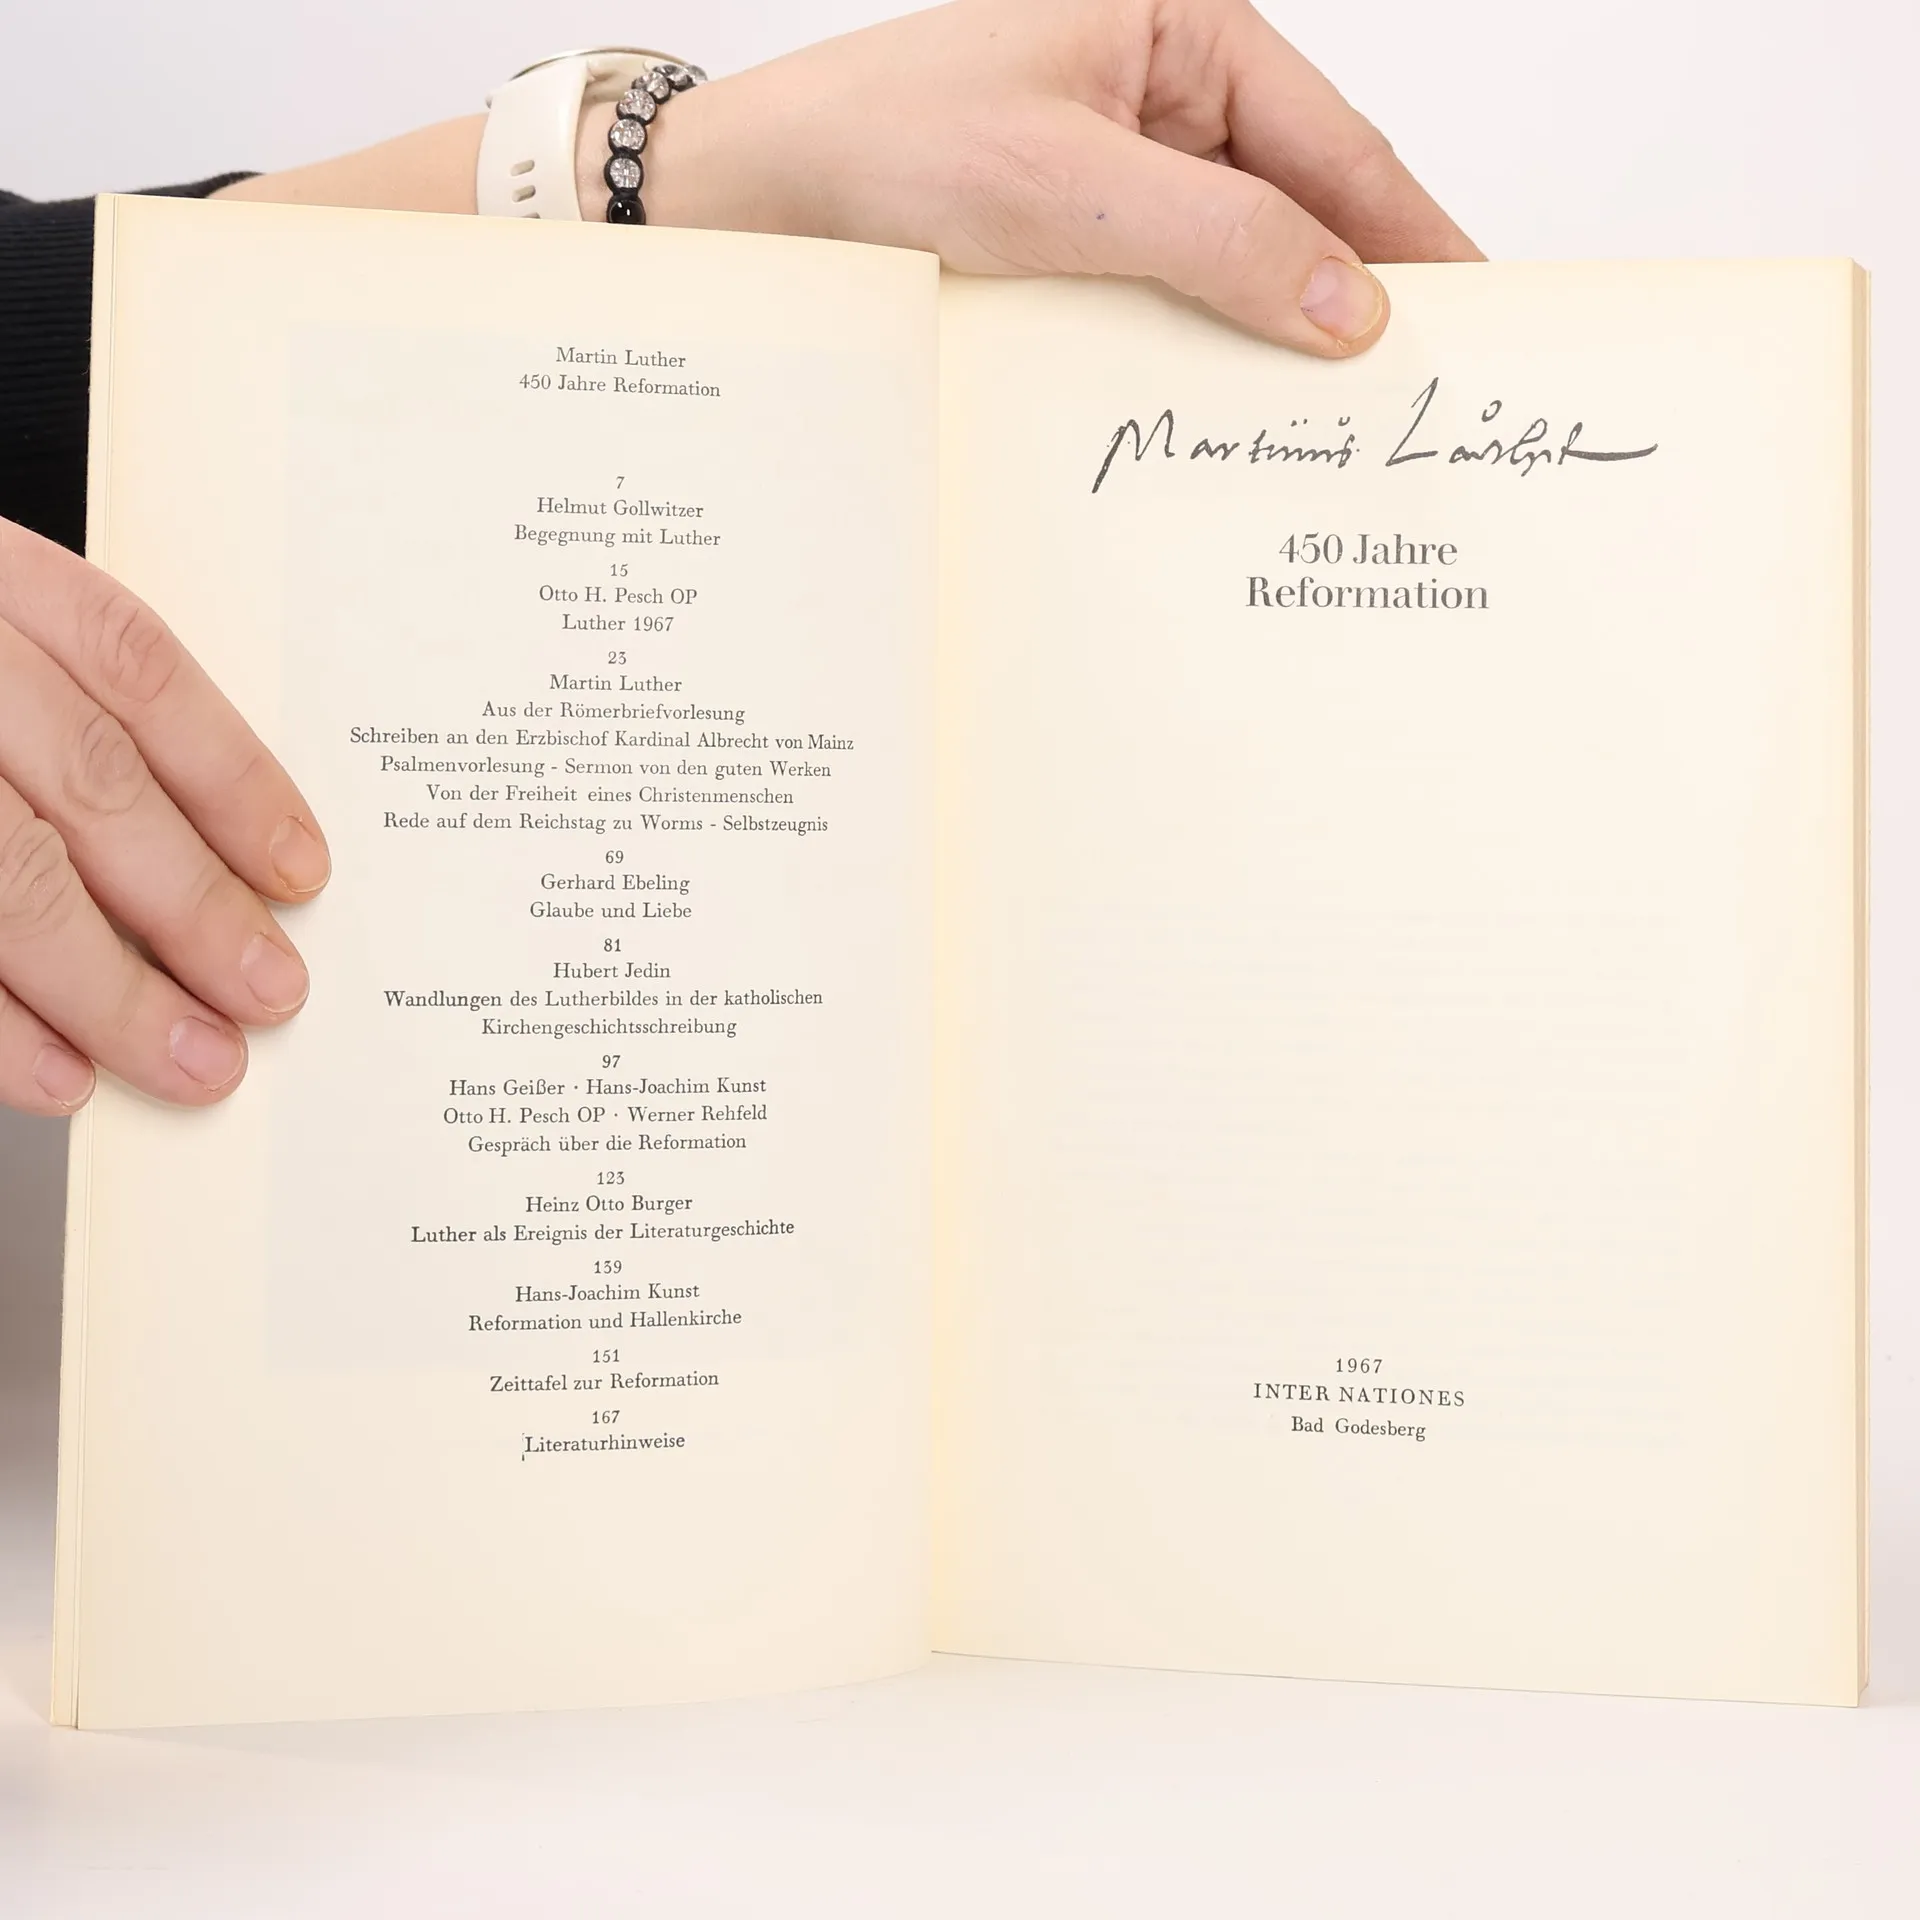 Martin Luther
450 Jahre Reformation
7
Helmut Gollwitzer
Begegnung mit Luther
15
Otto H. Pesch OP
Luther 1967
23
Martin Luther
Aus der Römerbriefvorlesung
Schreiben an den Erzbischof Kardinal Albrecht von Mainz
Psalmenvorlesung - Sermon von den guten Werken
Von der Freiheit eines Christenmenschen
Rede auf dem Reichstag zu Worms - Selbstzeugnis
69
Gerhard Ebeling
Glaube und Liebe
81
Hubert Jedin
Wandlungen des Lutherbildes in der katholischen
Kirchengeschichtsschreibung
97
Hans Geißer · Hans-Joachim Kunst
Otto H. Pesch OP · Werner Rehfeld
Gespräch über die Reformation
123
Heinz Otto Burger
Luther als Ereignis der Literaturgeschichte
139
Hans-Joachim Kunst
Reformation und Hallenkirche
151
Zeittafel zur Reformation
167
Literaturhinweise
Martinus
450 Jahre
Reformation
1967
INTER NATIONES
Bad Godesberg